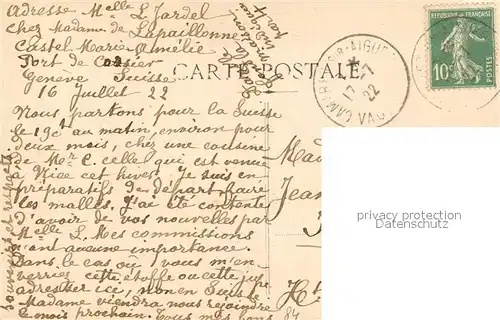 Adresse Melle L Jardel
chez Madame de Lapaillonne
Castel Marie Amélie
Port de
Genève Suisse
16 Juillet 22
Nous partons pour la Suisse
le 19ct au matin, environ pour
deux mois, chez une cousine
de Mr C. celle qui est venue
à Nice cet hiver. Je suis en
préparatifs de départ, faire
les malles. J'ai été contente
d'avoir de vos nouvelles par
Melle L. Mes commissions
n'ont aucune importance.
Dans le cas où vous m'en
verriez cette étoffe ou cette jupe
adresser ici, non en Suisse
Madame viendra nous rejoindre
le mois prochain. Tous mes bons
Souvenirs et respects
CARTE POSTALE
REPUBLIQUE FRANÇAISE
10c
POSTES
CAMARET-SUR-AIGUES
17-7
22
VAU
Mad
Jean
Ht
84
privacy protection
oldthing.de